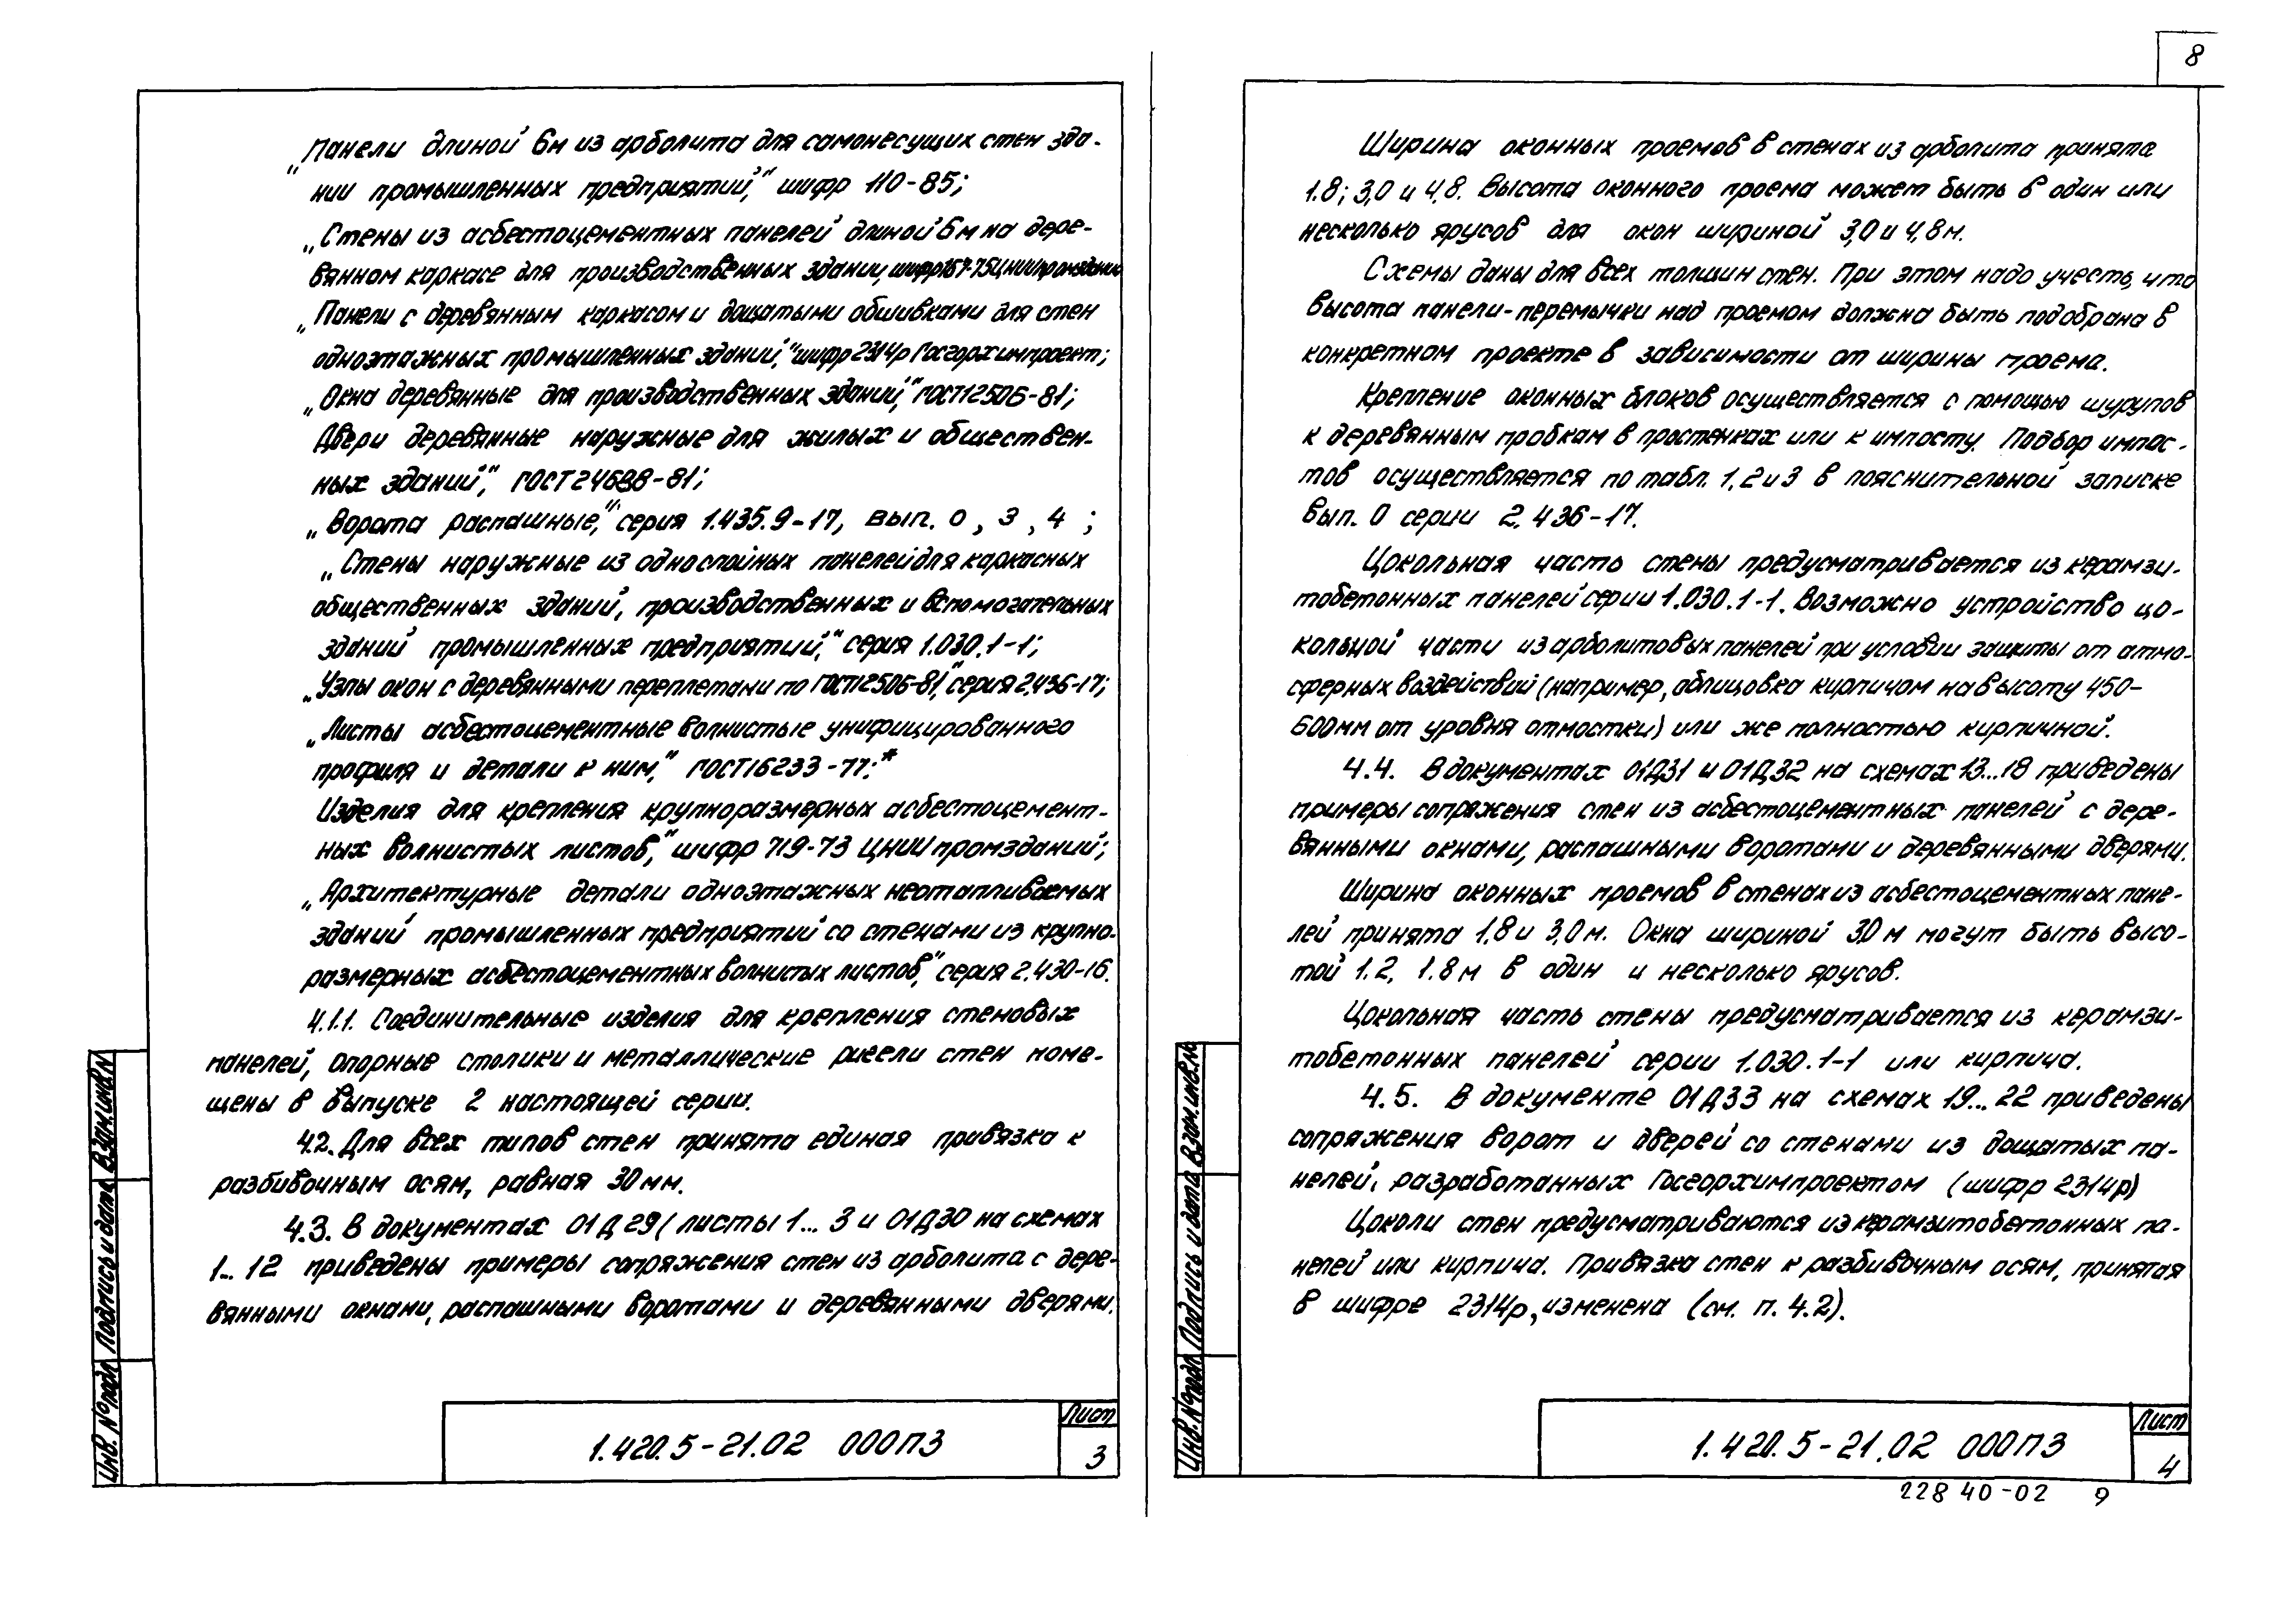 8
„Панели длиной 6м из арболита для самонесущих стен зда-
нии промышленных предприятий,“ шифр 110-85;
„Стены из асбестоцементных панелей длиной 6м на дере-
вянном каркасе для производственных зданий, шифр 157-75 ЦНИИпромзданий
„Панели с деревянным каркасом и дощатыми обшивками для стен
одноэтажных промышленных зданий,“ шифр 2314р Госгорхимпроект;
„Окна деревянные для производственных зданий,“ ГОСТ 12506-81;
Двери деревянные наружные для жилых и обществен-
ных зданий,“ ГОСТ 24698-81;
„Ворота распашные,“ серия 1.435.9-17, вып. 0, 3, 4;
„Стены наружные из однослойных панелей для каркасных
общественных зданий, производственных и вспомогательных
зданий промышленных предприятий,“ серия 1.030.1-1;
„Узлы окон с деревянными переплетами по ГОСТ 12506-81,“ серия 2.436-17;
„Листы асбестоцементные волнистые унифицированного
профиля и детали к ним,“ ГОСТ 16233-77;*
Изделия для крепления крупноразмерных асбестоцемент-
ных волнистых листов,“ шифр 719-73 ЦНИИ промзданий;
„Архитектурные детали одноэтажных неотапливаемых
зданий промышленных предприятий со стенами из крупно-
размерных асбестоцементных волнистых листов,“ серия 2.430-16.
4.1.1. Соединительные изделия для крепления стеновых
панелей, опорные столики и металлические ригели стен поме-
щены в выпуске 2 настоящей серии.
4.2. Для всех типов стен принята единая привязка к
разбивочным осям, равная 30 мм.
4.3. В документах 01Д29 (листы 1... 3 и 01Д30 на схемах
1... 12 приведены примеры сопряжения стен из арболита с дере-
вянными окнами, распашными воротами и деревянными дверями.
Инв. № подл. Подпись и дата Взам.инв.№
1.420.5-21.02 000ПЗ
Лист
3
Ширина оконных проемов в стенах из арболита принята
1.8; 3,0 и 4,8. Высота оконного проема может быть в один или
несколько ярусов для окон шириной 3,0 и 4,8м.
Схемы даны для всех толщин стен. При этом надо учесть, что
высота панели-перемычки над проемом должна быть подобрана в
конкретном проекте в зависимости от ширины проема.
Крепление оконных блоков осуществляется с помощью шурупов
к деревянным пробкам в простенках или к импосту. Подбор импос-
тов осуществляется по табл. 1, 2 и 3 в пояснительной записке
вып. 0 серии 2.436-17.
Цокольная часть стены предусматривается из керамзи-
тобетонных панелей серии 1.030.1-1. Возможно устройство цо-
кольной части из арболитовых панелей при условии защиты от атмо-
сферных воздействий (например, облицовка кирпичом на высоту 450-
600мм от уровня отмостки) или же полностью кирпичной.
4.4. В документах 01Д31 и 01Д32 на схемах 13...18 приведены
примеры сопряжения стен из асбестоцементных панелей с дере-
вянными окнами, распашными воротами и деревянными дверями.
Ширина оконных проемов в стенах из асбестоцементных пане-
лей принята 1,8 и 3,0м. Окна шириной 3,0 м могут быть высо-
той 1.2, 1.8 м в один и несколько ярусов.
Цокольная часть стены предусматривается из керамзи-
тобетонных панелей серии 1.030.1-1 или кирпича.
4.5. В документе 01Д33 на схемах 19...22 приведены
сопряжения ворот и дверей со стенами из дощатых па-
нелей, разработанных Госгорхимпроектом (шифр 2314р)
Цоколи стен предусматриваются из керамзитобетонных па-
нелей или кирпича. Привязка стен к разбивочным осям, принятая
в шифре 2314р, изменена (см. п. 4.2).
Инв. № подл. Подпись и дата Взам.инв.№
1.420.5-21.02 000ПЗ
Лист
4
22840-02 9